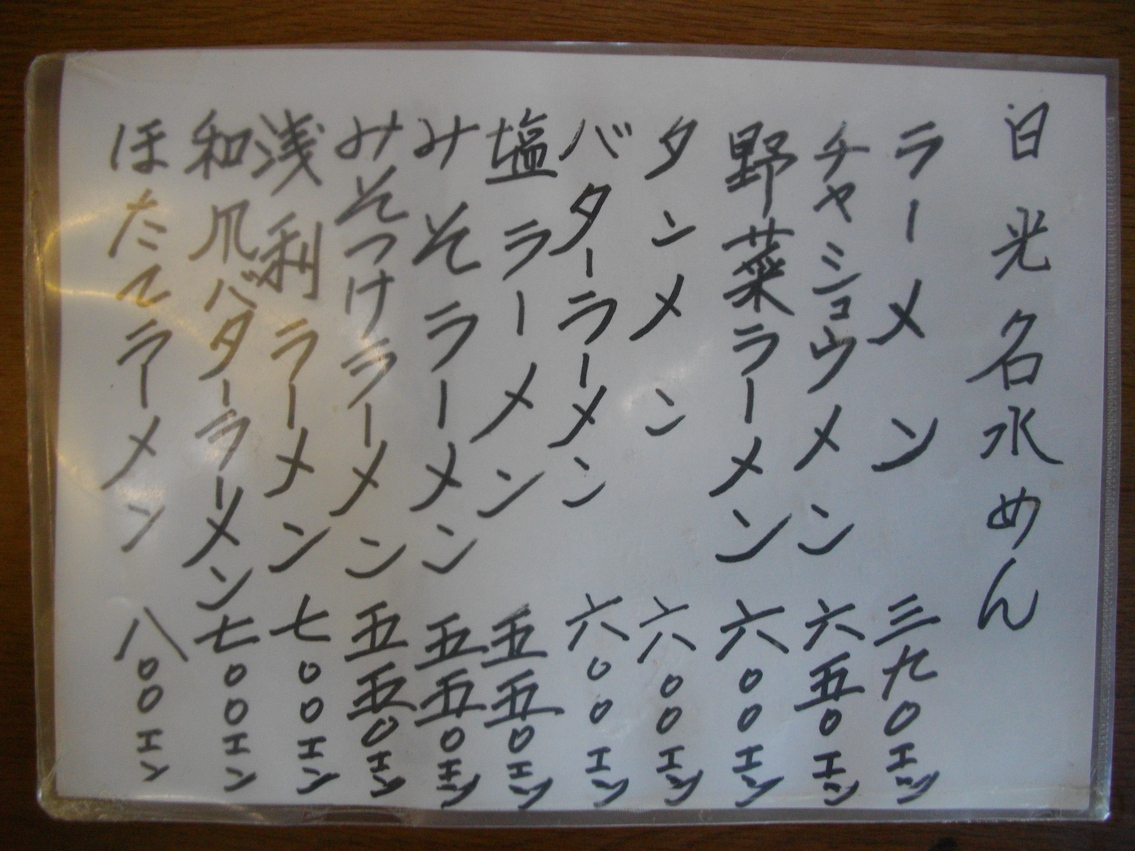 日光名水めん
ラーメン 三九０エン
チャショウメン 六五０エン
野菜ラーメン 六００エン
タンメン 六００エン
バターラーメン 六００エン
塩ラーメン 五五０エン
みそラーメン 五五０エン
みそつけラーメン 五五０エン
浅利ラーメン 七００エン
和爪バターラーメン 七００エン
ほたてラーメン 八００エン